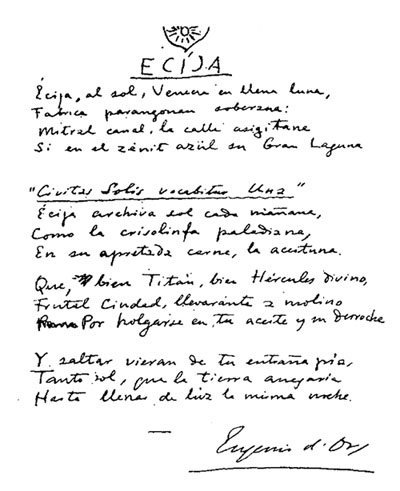 ECIJA
Écija, al sol, Venecia en llena luna,
Fabrica parangonan soberana:
Mitral canal, la calle asigitana
Si en el zénit azul su Gran Laguna
"Civitas Solis vocabitur Una"
Écija archiva sol cada mañana,
Como la crisolinfa paladiana,
En su apretada carne, la aceituna.
Que, bien Titán, bien Hércules divino,
Frutal Ciudad, llevarante a molino
Por holgarse en tu aceite y su derroche
Y saltar vieran de tu entraña pía,
Tanto sol, que la tierra anegaría
Hasta llenar de luz la misma noche.
Eugenio d'Ors